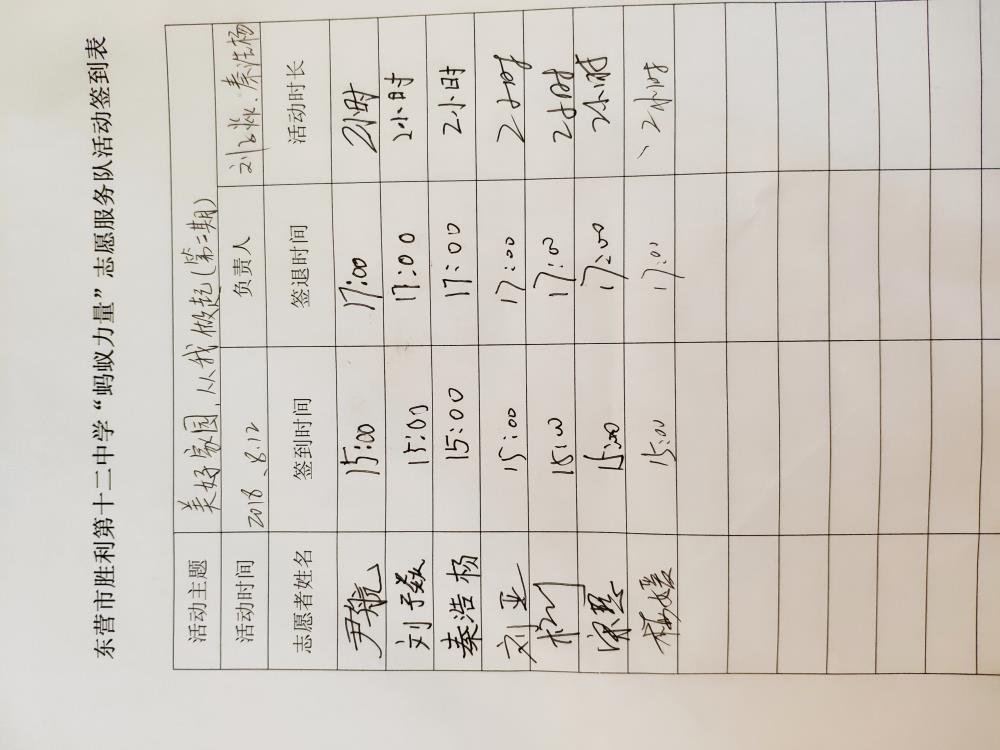 东营市胜利第十二中学“蚂蚁力量”志愿服务队活动签到表
活动主题 美好家园,从我做起(第二期)
活动时间 2018、8.12 负责人 刘子焱、秦浩杨
志愿者姓名 签到时间 签退时间 活动时长
尹航 15:00 17:00 2小时
刘子焱 15:00 17:00 2小时
秦浩杨 15:00 17:00 2小时
刘亚 15:00 17:00 2小时
15:00 17:00 2小时
15:00 17:00 2小时
杨媛 15:00 17:00 2小时